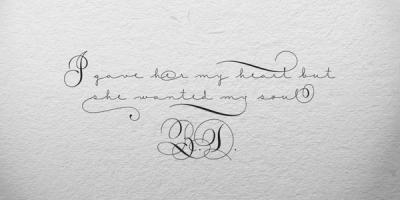 I gave her my heart but
she wanted my soul
B.D.